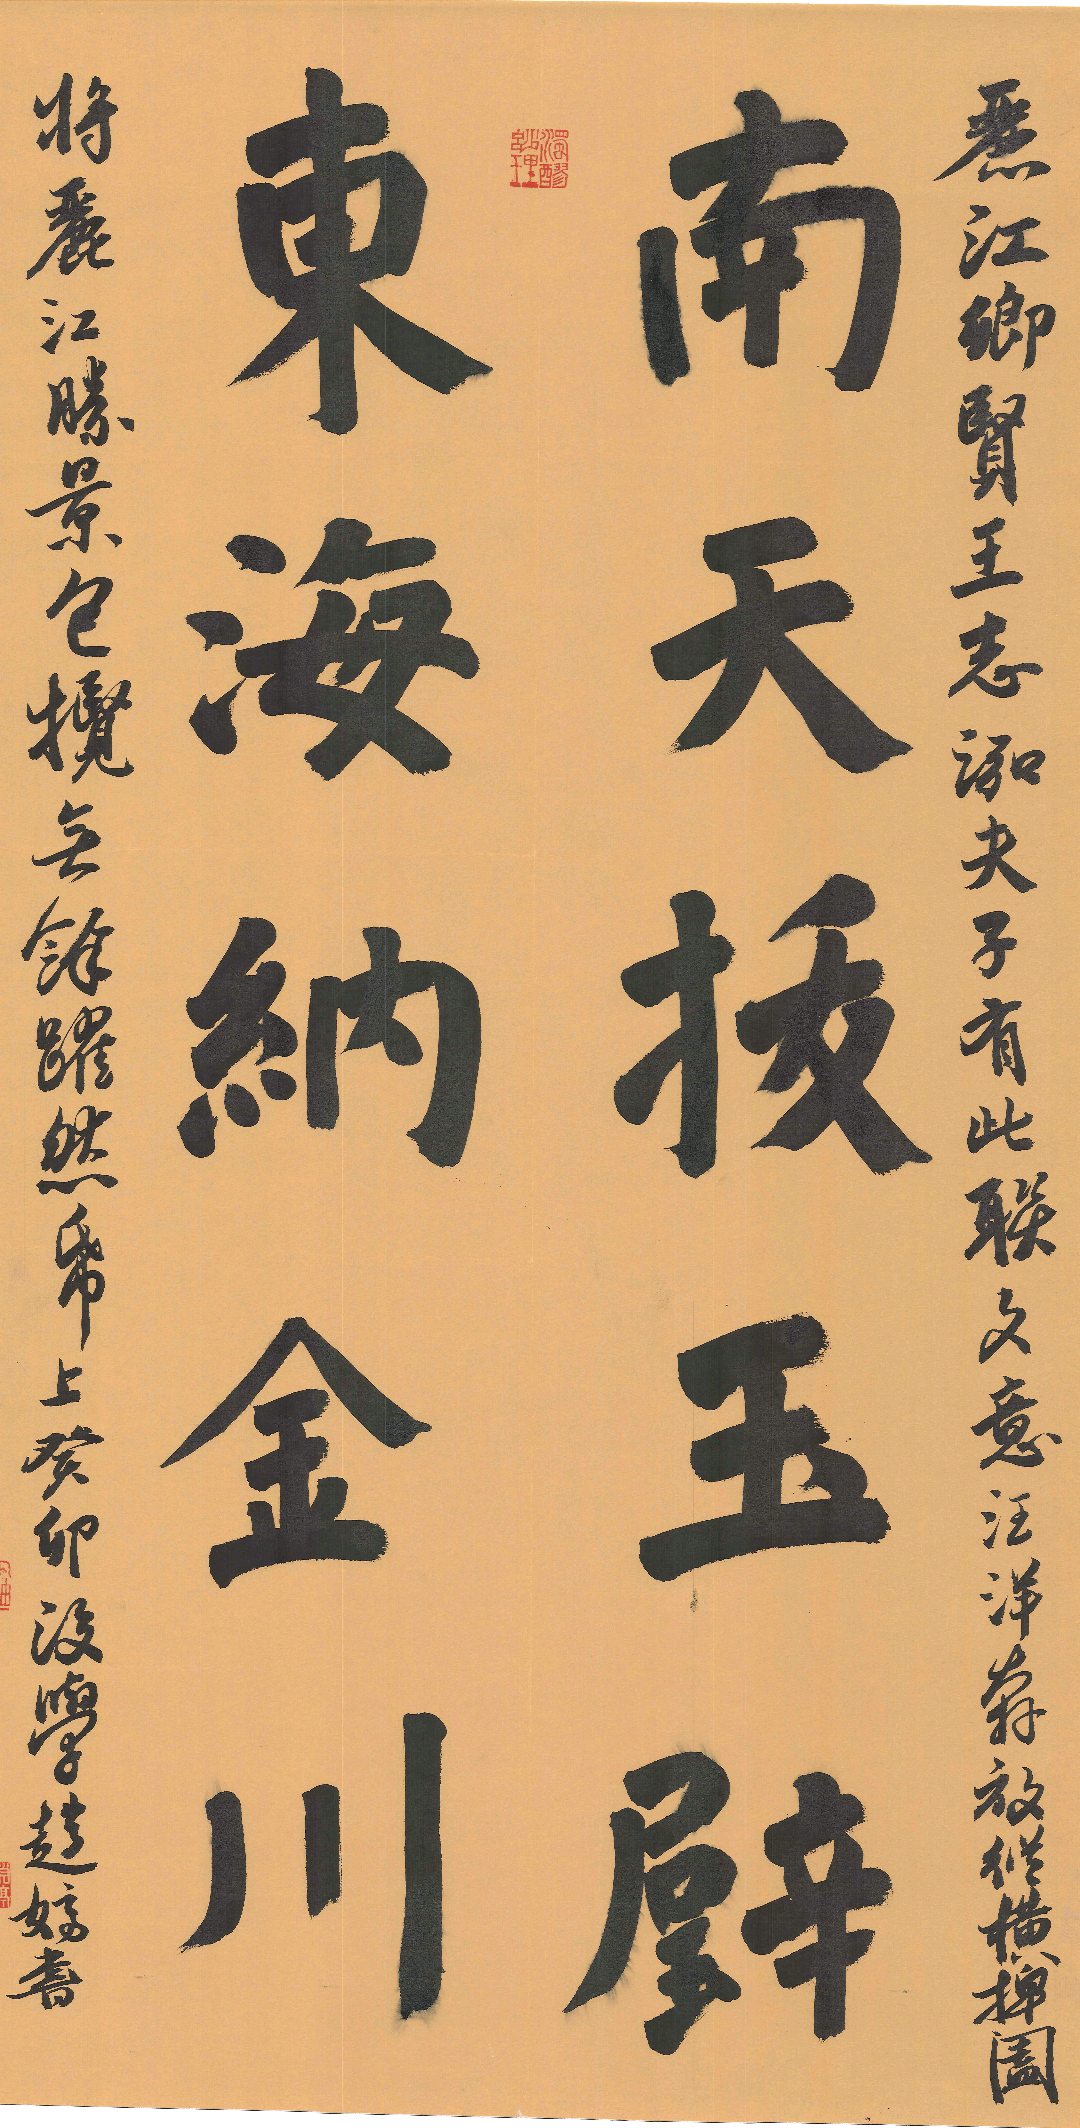 麗江鄉賢王志泓夫子有此联文意汪洋奔放縱橫捭阖
南天拔玉壁
東海納金川
將麗江勝景包攬无餘躍然帋上癸卯後學趙嫡書